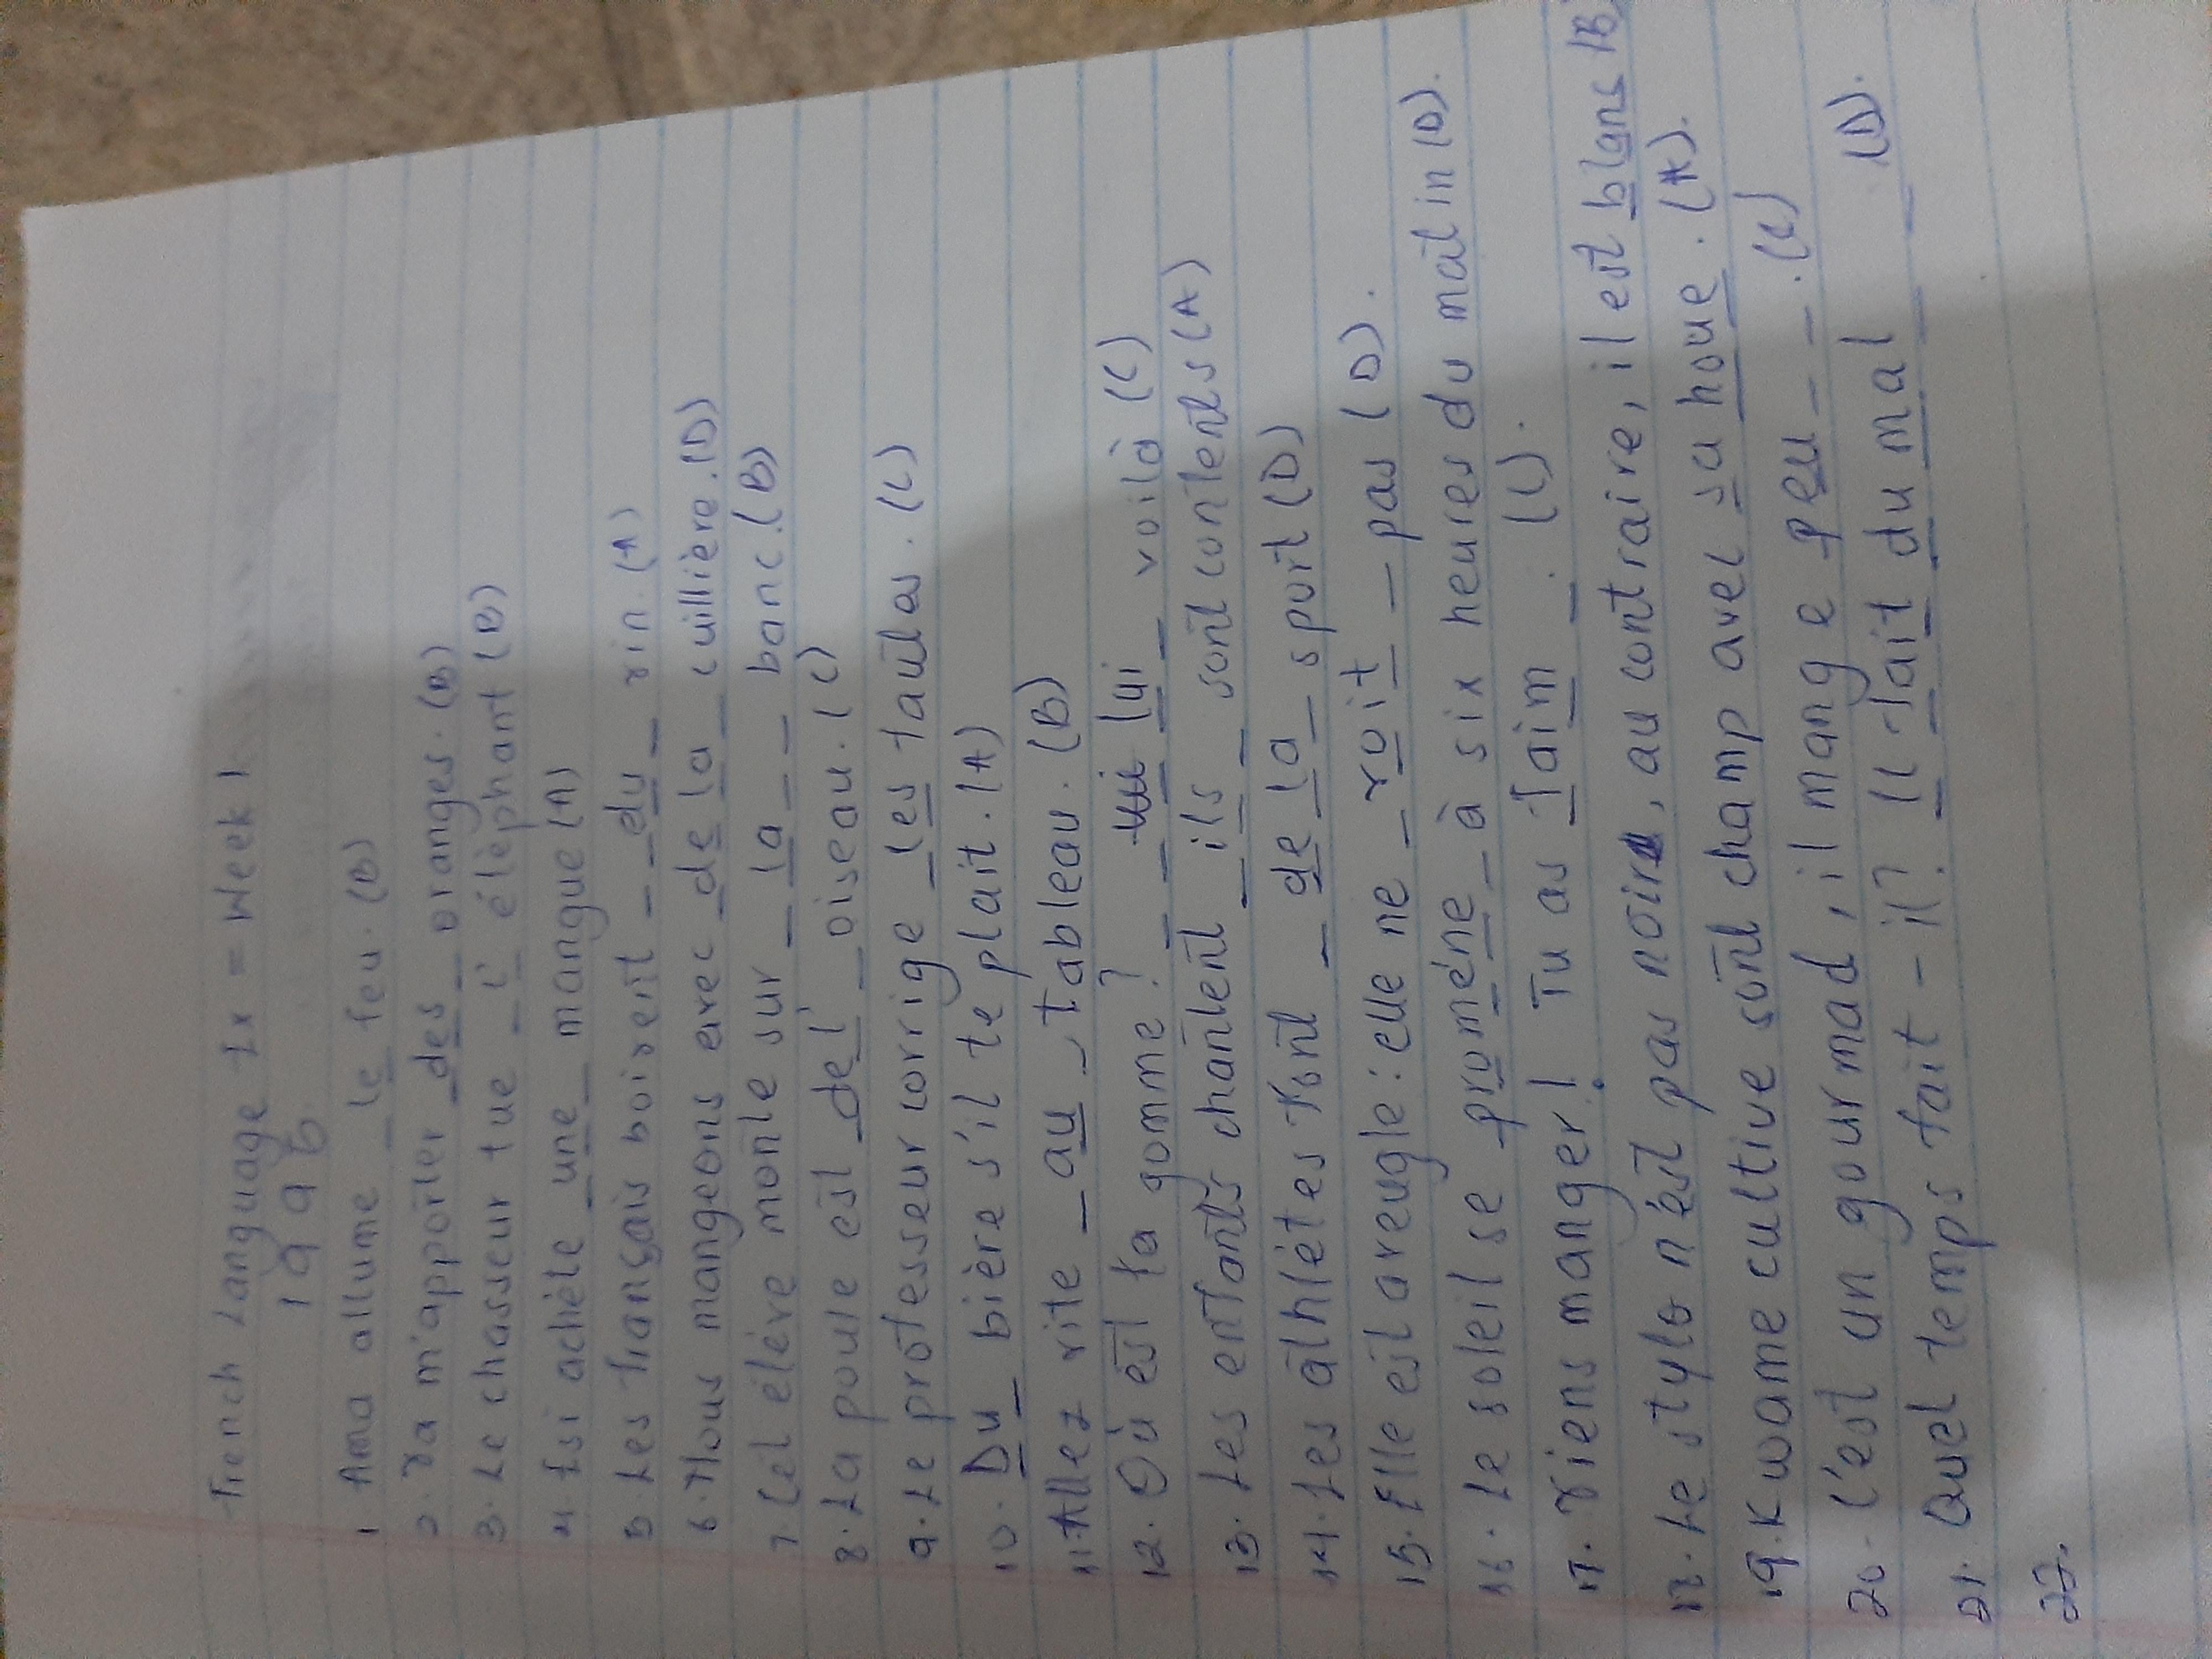 French Language Ex = Week 1
1996
1 Ama allume _ le feu. (B)
2 Va m'apporter _des_ oranges. (B)
3. Le chasseur tue _ l' éléphant (B)
4 Esi achète _une_ mangue (A)
5 Les français boivent _ _du_ vin. (A)
6. Nous mangeons avec _de la_ cuillière. (D)
7 Cet élève monte sur _ la _ _ banc. (B)
8. La poule est _de l'_ oiseau. (C)
9. Le professeur corrige _les fautes. (C)
10. Du_ bière s'il te plait. (A)
11. Allez vite _ au _ tableau. (B)
12. Où est ta gomme? _ _ lui _ voilà (C)
13. Les enfants chantent _ ils _ sont contents (A)
14. Les athlètes font _ de la_ sport (D)
15. Elle est aveugle: elle ne _ voit _ pas (D).
16. Le soleil se _promène_ à six heures du matin (D).
17. Viens manger! Tu as faim _. (C).
18. Le stylo n'est pas noir, au contraire, il est blans (B)
19. Kwame cultive sont champ avec sa houe. (A).
20. C'est un gourmad, il mange peu _ _. (C)
21. Quel temps fait-il? Il fait du mal _ (D).
22.